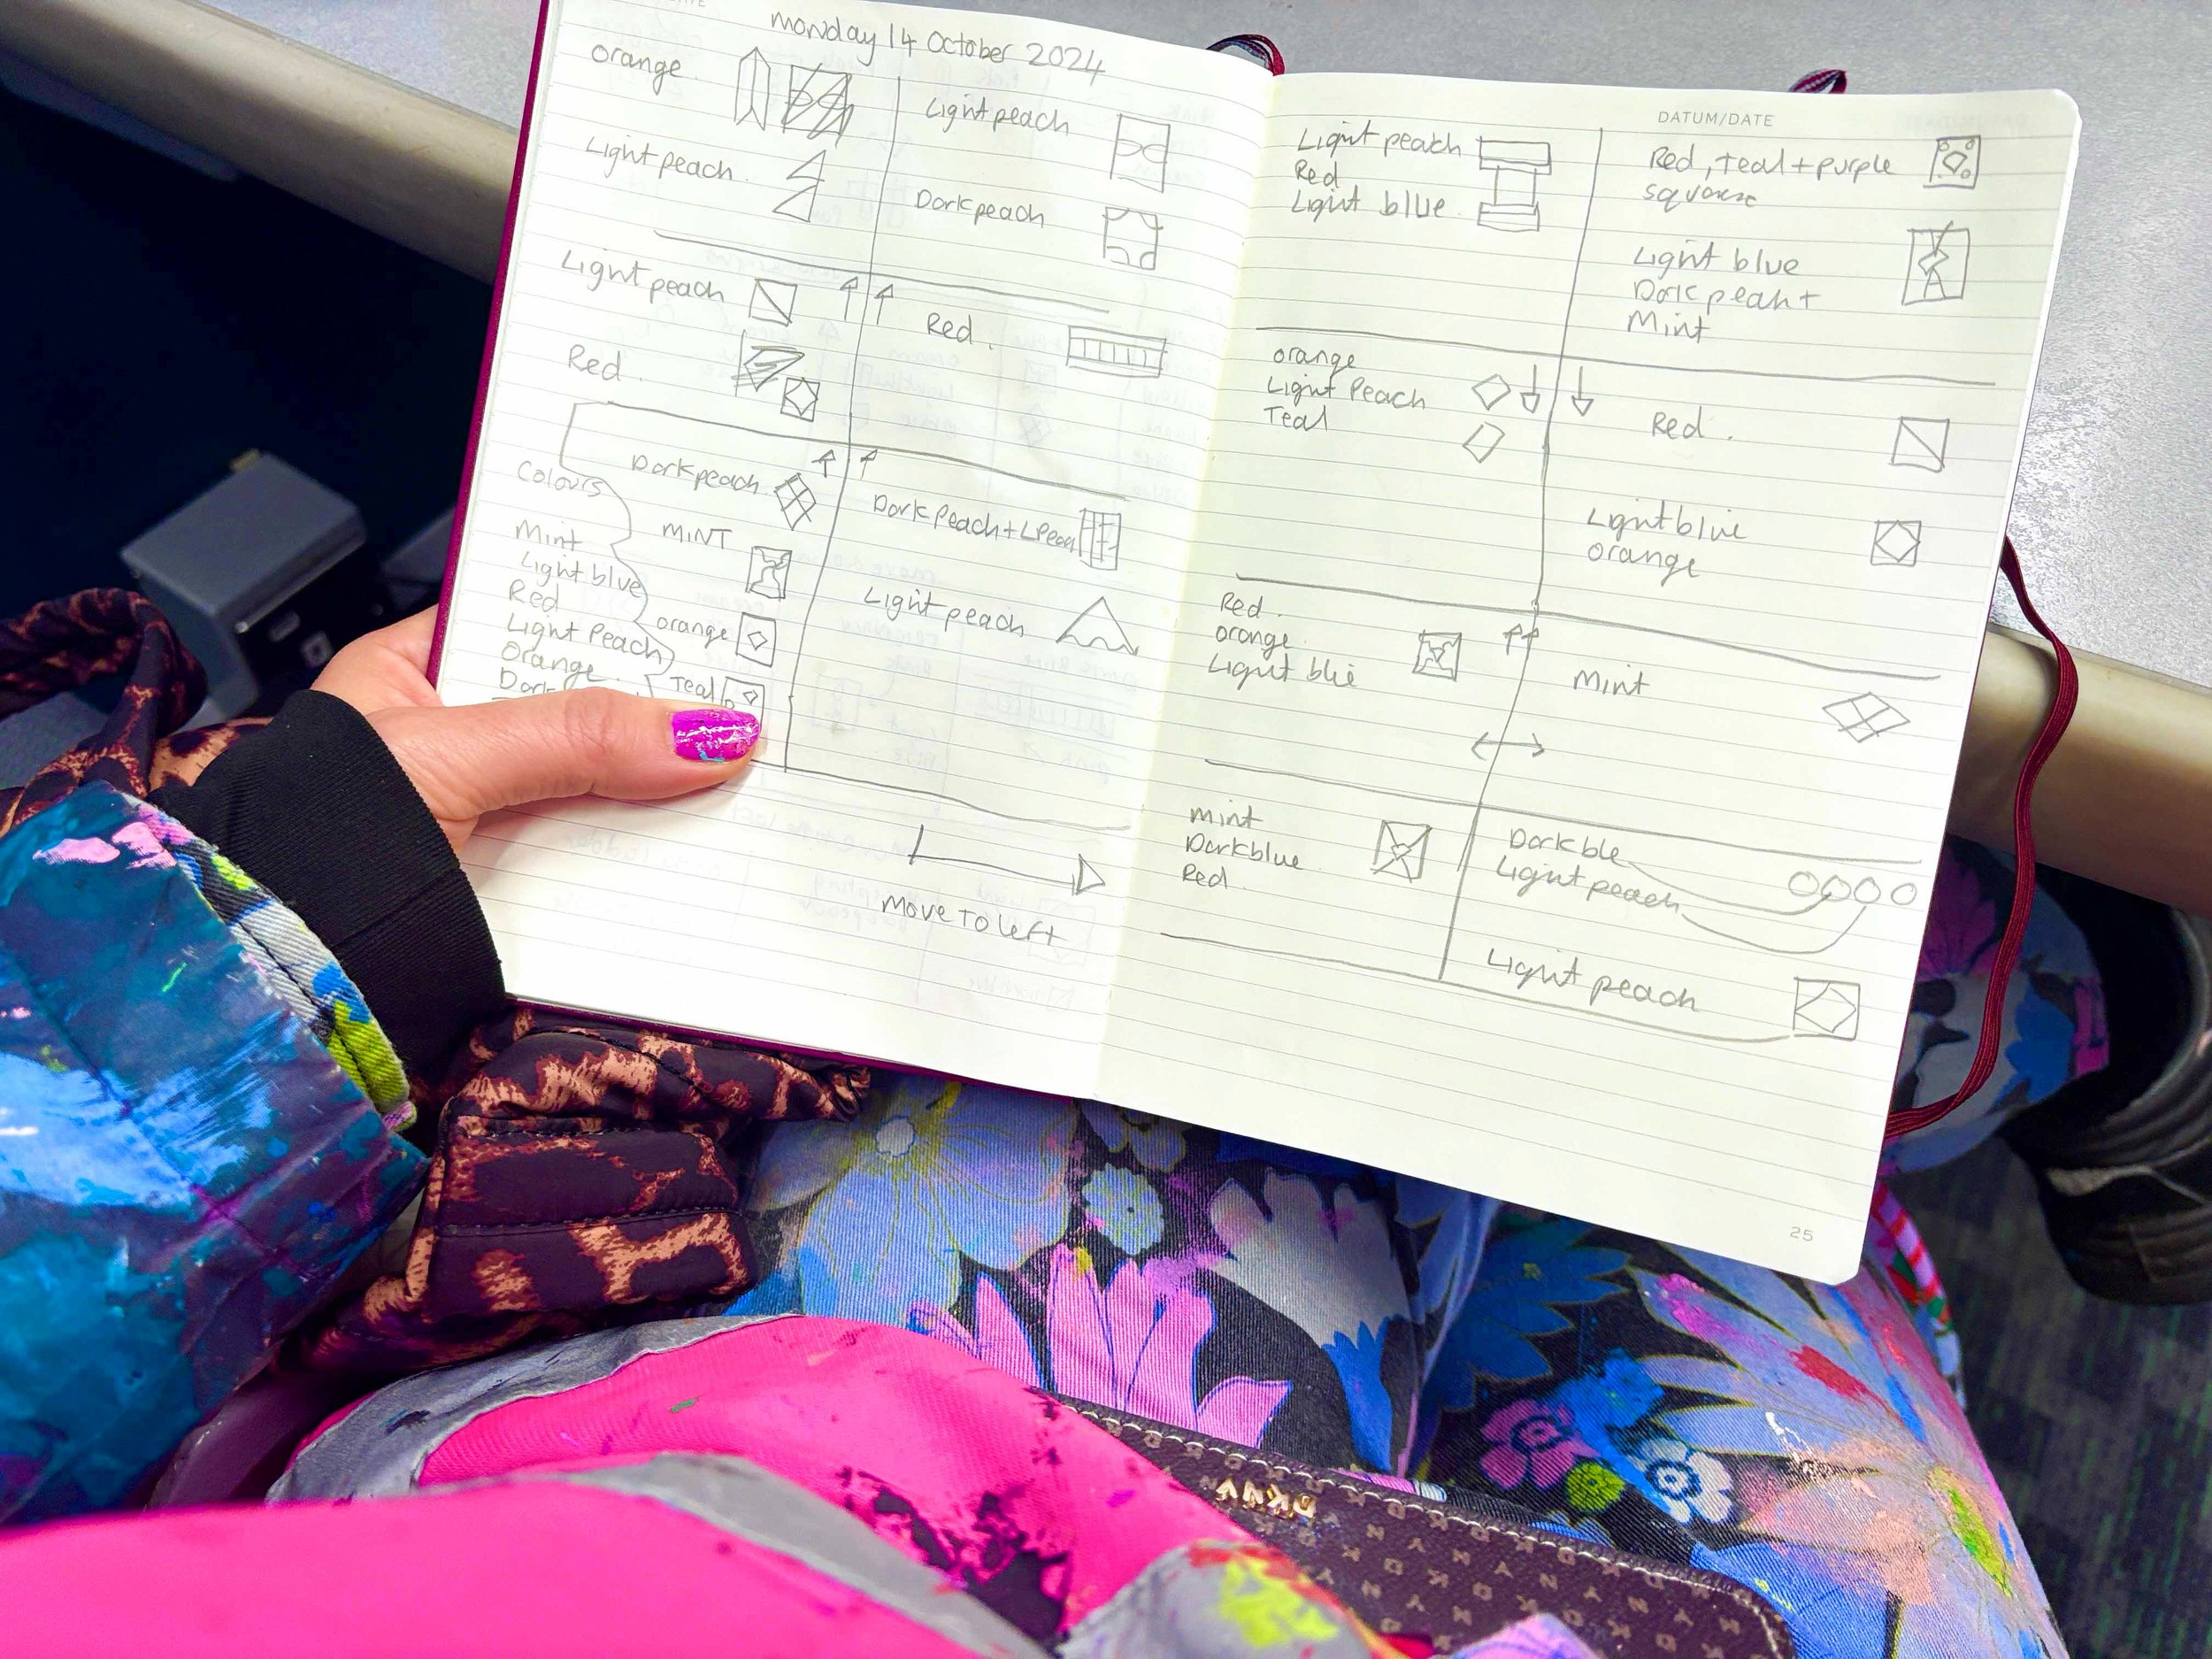 monday 14 October 2024
orange
Light peach
Light peach
Dark peach
Light peach
Red
Red.
Colours
Mint
Light blue
Red
Light Peach
Orange
Dark
Dark peach
MINT
orange
Teal
Dark Peach + LPeach
Light peach
move to left
DATUM/DATE
Light peach
Red
Light blue
Red, teal + purple
square
Light blue
Dark peah +
Mint
orange
Light Peach
Teal
Red.
Light blue
orange
Red
orange
Light blie
Mint
mint
Darkblue
Red
Dark ble
Light peach
Light peach
25
DKNY